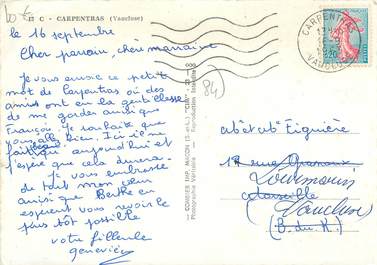 10 €
17 C - CARPENTRAS (Vaucluse)
le 16 septembre
Cher parrain, chère marraine
Je vous envoie ce petit
mot de Carpentras où des
amis ont eu la gentillesse
de me garder ainsi que
François. Je souhaite que
bien. Ici il ne
aujourd'hui et
j'espère que cela durera.
Je vous embrasse
de tout mon cœur
ainsi que
espérant vous revoir le
plus tôt possible
votre filleule
geneviève
COMBIER IMP. MACON (S.-et-L.) "CIM"
Photographie Véritable - Reproduction interdite
84
CARPENTRAS
VAUCLUSE
0,20
Figuière
rue
Lourmarin
Marseille
Vaucluse
(B. du R.)